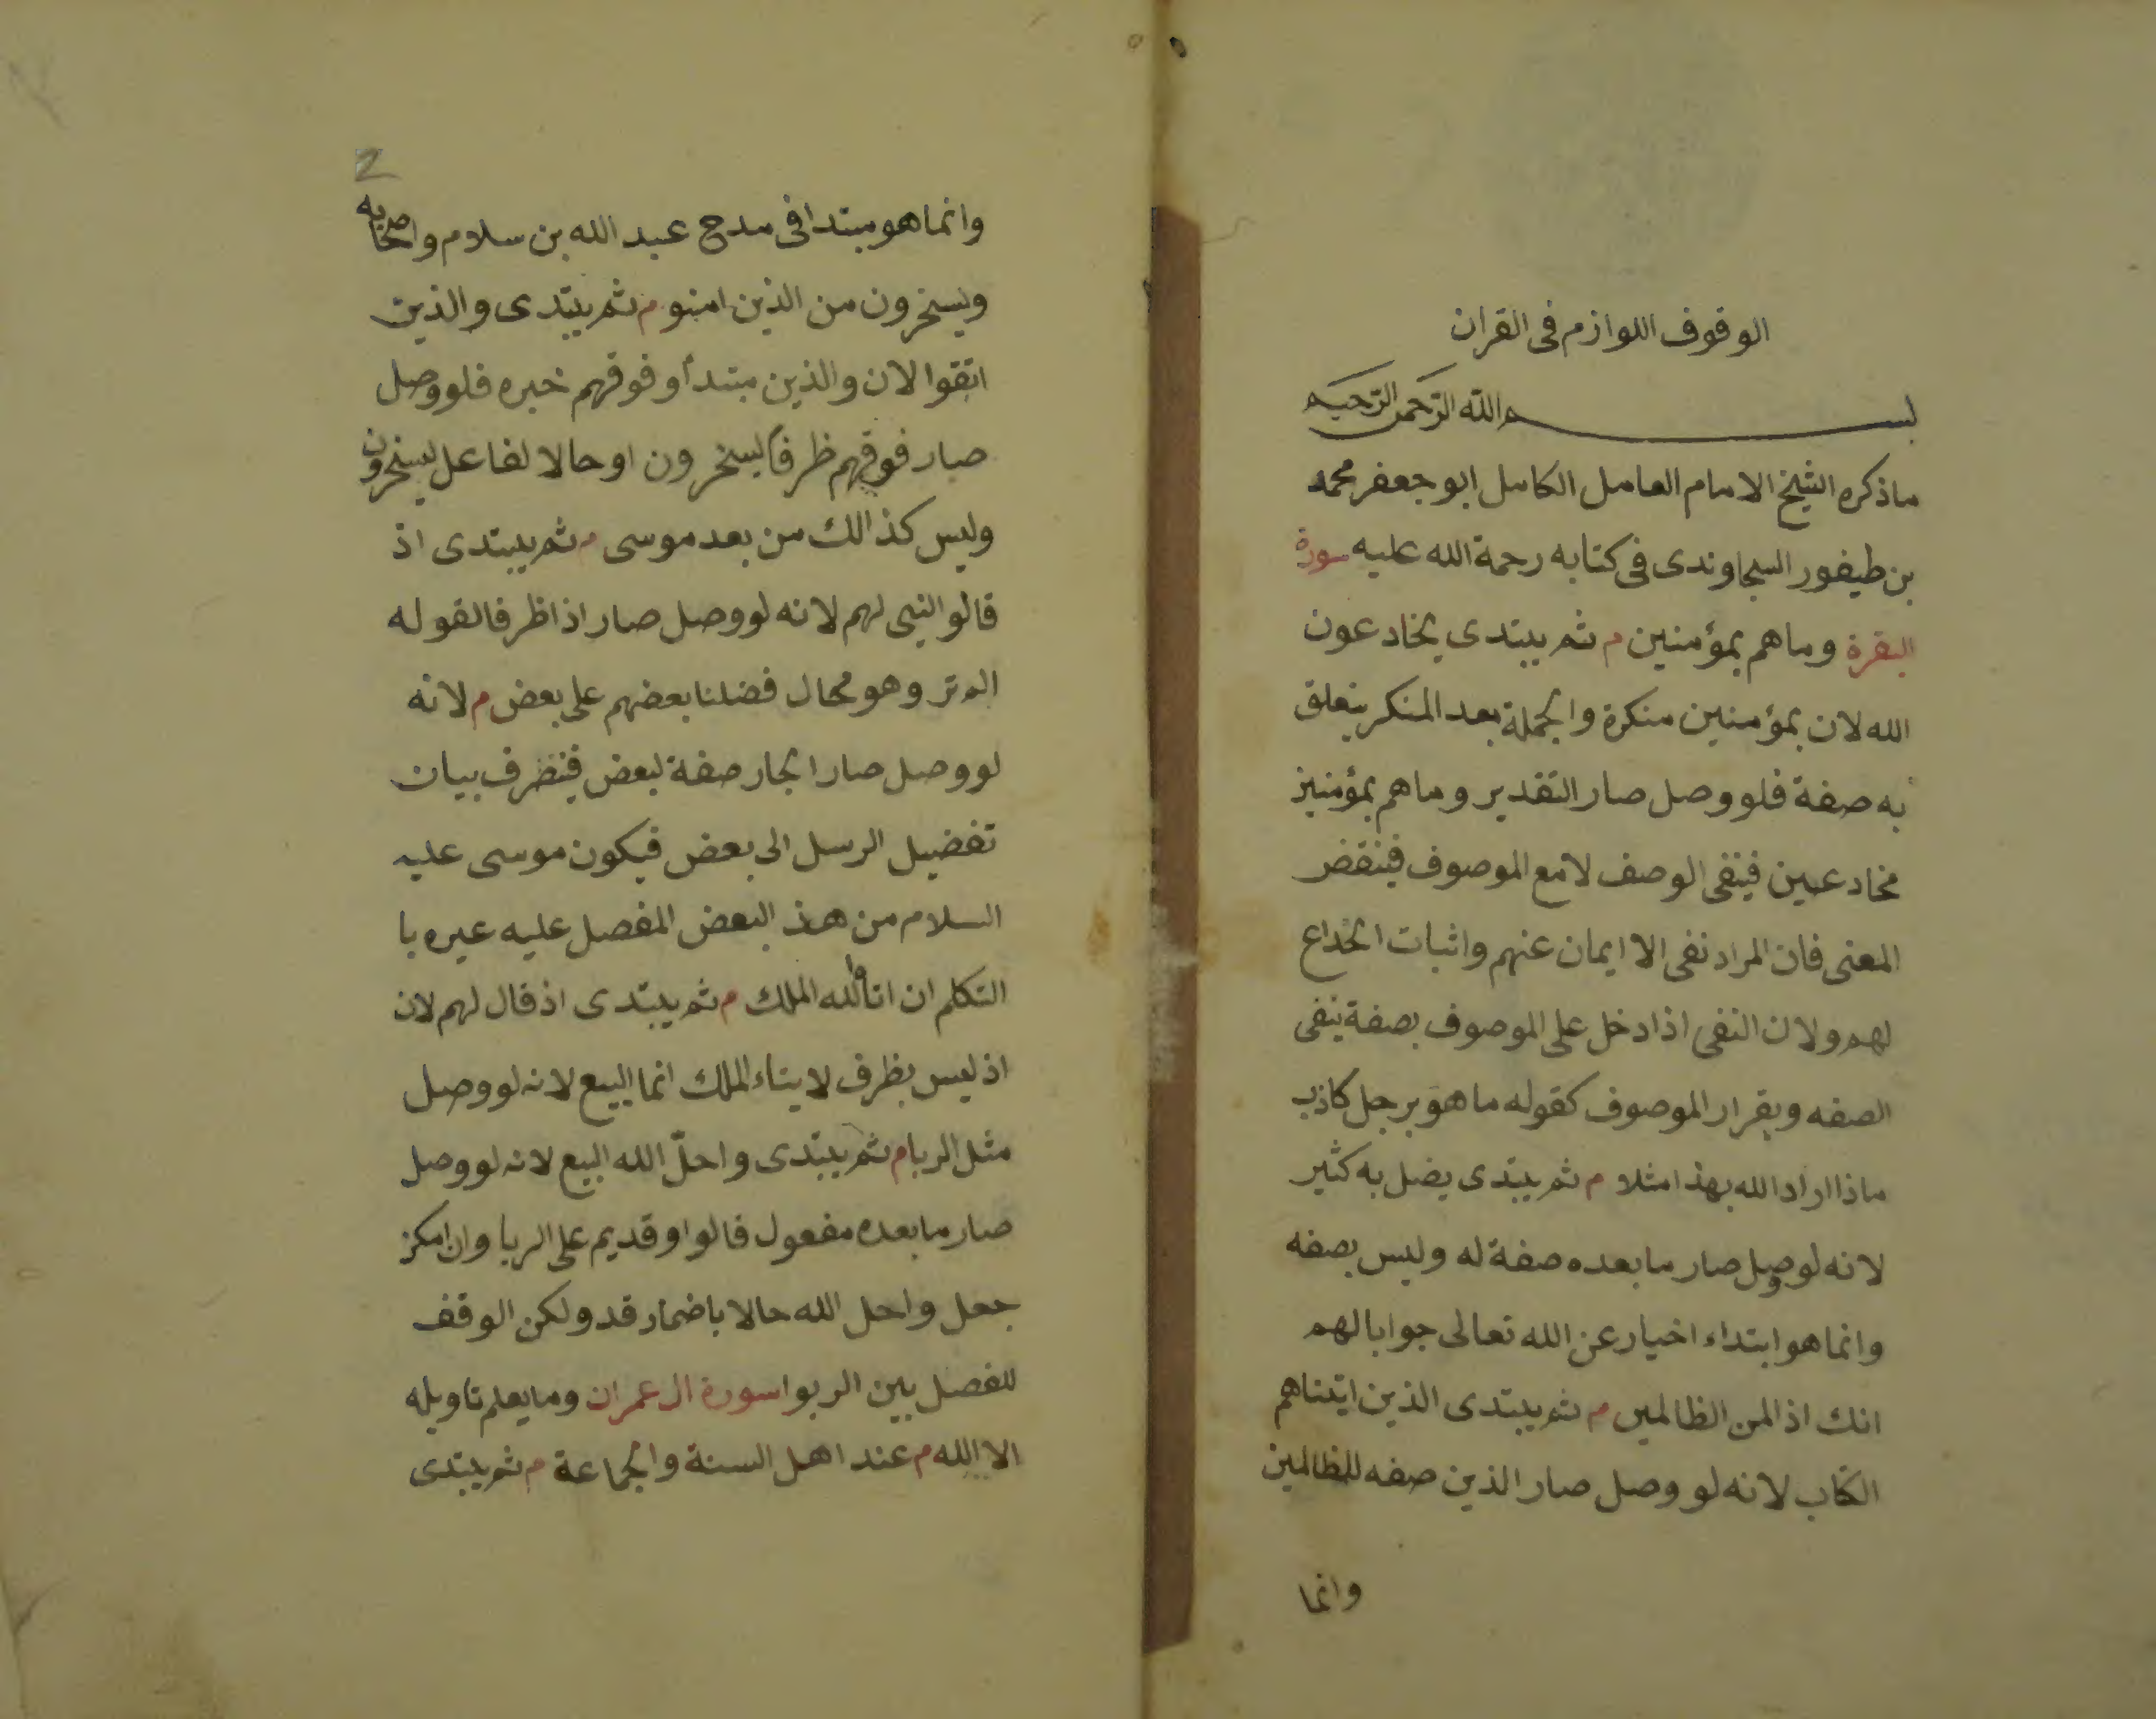 الوقوف اللوازم فى القران
بسم الله الرحمن الرحيم
ماذكره الشيخ الامام العامل الكامل ابو جعفر محمد
بن طيفور السجاوندى فى كتابه رحمة الله عليه سورة
البقرة وماهم بمؤمنين م ثم يبتدى يخادعون
الله لان بمؤمنين منكرة والجملة بعد المنكر يتعلق
به صفة فلو وصل صار التقدير وماهم بمؤمنين
مخادعين فينفى الوصف لامع الموصوف فينقض
المعنى فان المراد نفى الا ايمان عنهم واثبات الخداع
لهم ولان النفى اذا دخل على الموصوف بصفة ينفى
الصفه ويقرار الموصوف كقوله ما هو برجل كاذب
ماذا اراد الله بهذا مثلا م ثم يبتدى يضل به كثير
لانه لو وصل صار ما بعده صفة له وليس بصفه
وانما هو ابتداء اخبار عن الله تعالى جوابا لهم
انك اذا لمن الظالمين م ثم يبتدى الذين اتيناهم
الكتاب لانه لو وصل صار الذين صفه للظالمين
وانما
2
وانما هو مبتدا فى مدح عبد الله بن سلام واصحابه
ويسخرون من الذين امنو م ثم يبتدى والذين
اتقوا لان والذين مبتدأ وفوقهم خبره فلو وصل
صار فوقهم ظرفا ليسخرون او حالا لفاعل يسخرون
وليس كذالك من بعد موسى م ثم يبتدى اذ
قالو النبى لهم لانه لو وصل صار اذا ظرفا لقوله
الم تر وهو محال فضلنا بعضهم على بعض م لانه
لو وصل صار الجار صفة لبعض فينصرف بيان
تفضيل الرسل الى بعض فيكون موسى عليه
السلام من هذ البعض المفصل عليه عيره با
التكلم ان اتا الله الملك م ثم يبتدى اذ قال لهم لان
اذ ليس بظرف لايتاء الملك انما البيع لانه لو وصل
مثل الربا م ثم يبتدى واحلّ الله البيع لانه لو وصل
صار ما بعده مفعول قالوا وقديم على الربا وان امكن
جعل واحل الله حالا باضمار قد ولكن الوقف
للفصل بين الربوا سورة ال عمران وما يعلم تاويله
الا الله م عند اهل السنة والجماعة م ثم يبتدى